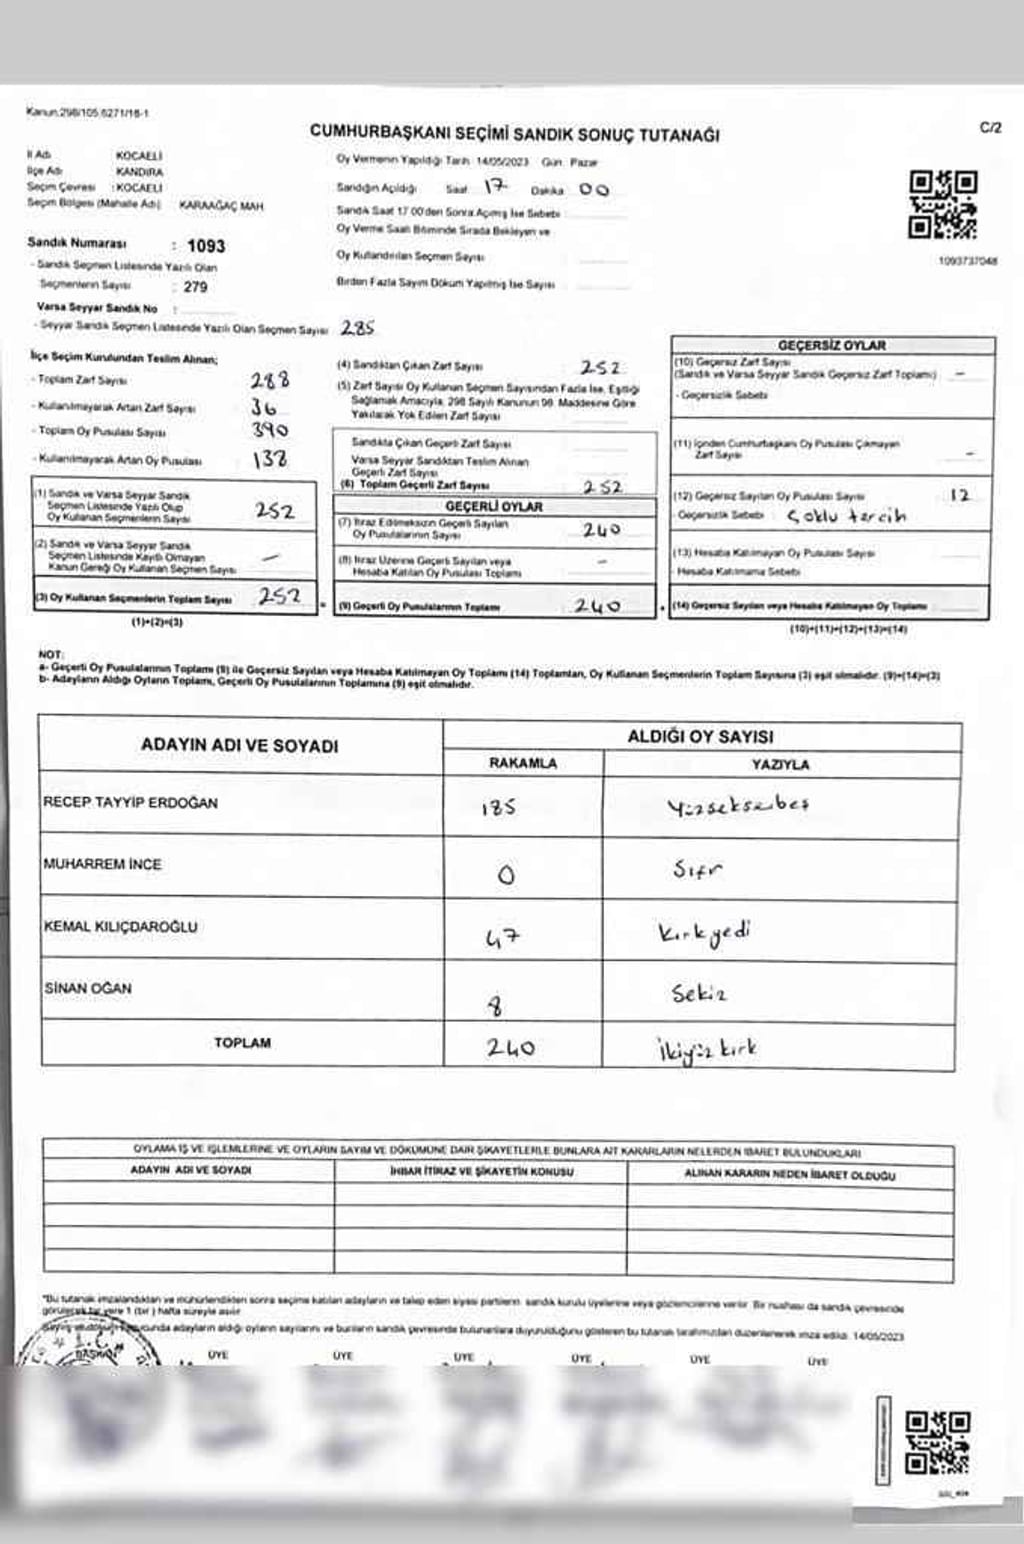 Kanun:298/105.6271/18-1
C/2
CUMHURBAŞKANI SEÇİMİ SANDIK SONUÇ TUTANAĞI
İl Adı KOCAELİ
İlçe Adı KANDIRA
Seçim Çevresi : KOCAELİ
Seçim Bölgesi (Mahalle Adı) KARAAĞAÇ MAH.
Sandık Numarası : 1093
- Sandık Seçmen Listesinde Yazılı Olan
Seçmenlerin Sayısı : 279
Varsa Seyyar Sandık No :
- Seyyar Sandık Seçmen Listesinde Yazılı Olan Seçmen Sayısı 285
Oy Vermenin Yapıldığı Tarih 14/05/2023 Gün Pazar
Sandığın Açıldığı Saat 17 Dakika 00
Sandık Saat 17 00'den Sonra Açılmış İse Sebebi :
Oy Verme Saati Bitiminde Sırada Bekleyen ve
Oy Kullandırılan Seçmen Sayısı
Birden Fazla Sayım Döküm Yapılmış İse Sayısı
1093737048
İlçe Seçim Kurulundan Teslim Alınan;
- Toplam Zarf Sayısı 288
- Kullanılmayarak Artan Zarf Sayısı 36
- Toplam Oy Pusulası Sayısı 390
- Kullanılmayarak Artan Oy Pusulası 138
(1) Sandık ve Varsa Seyyar Sandık
Seçmen Listesinde Yazılı Olup
Oy Kullanan Seçmenlerin Sayısı 252
(2) Sandık ve Varsa Seyyar Sandık
Seçmen Listesinde Kayıtlı Olmayan
Kanun Gereği Oy Kullanan Seçmen Sayısı –
(3) Oy Kullanan Seçmenlerin Toplam Sayısı 252
(1)+(2)=(3)
(4) Sandıktan Çıkan Zarf Sayısı 252
(5) Zarf Sayısı Oy Kullanan Seçmen Sayısından Fazla İse, Eşitliği
Sağlamak Amacıyla, 298 Sayılı Kanunun 98. Maddesine Göre
Yakılarak Yok Edilen Zarf Sayısı
Sandıkta Çıkan Geçerli Zarf Sayısı
Varsa Seyyar Sandıktan Teslim Alınan
Geçerli Zarf Sayısı
(6) Toplam Geçerli Zarf Sayısı 252
GEÇERLİ OYLAR
(7) İtiraz Edilmeksizin Geçerli Sayılan
Oy Pusulalarının Sayısı 240
(8) İtiraz Üzerine Geçerli Sayılan veya
Hesaba Katılan Oy Pusulası Toplamı –
= (9) Geçerli Oy Pusulalarının Toplamı 240
GEÇERSİZ OYLAR
(10) Geçersiz Zarf Sayısı
(Sandık ve Varsa Seyyar Sandık Geçersiz Zarf Toplamı) –
- Geçersizlik Sebebi
(11) İçinden Cumhurbaşkanı Oy Pusulası Çıkmayan
Zarf Sayısı –
(12) Geçersiz Sayılan Oy Pusulası Sayısı 12
- Geçersizlik Sebebi : Çoklu tercih
(13) Hesaba Katılmayan Oy Pusulası Sayısı
- Hesaba Katılmama Sebebi
+ (14) Geçersiz Sayılan veya Hesaba Katılmayan Oy Toplamı
(10)+(11)+(12)+(13)=(14)
NOT:
a- Geçerli Oy Pusulalarının Toplamı (9) ile Geçersiz Sayılan veya Hesaba Katılmayan Oy Toplamı (14) Toplamları, Oy Kullanan Seçmenlerin Toplam Sayısına (3) eşit olmalıdır. (9)+(14)=(3)
b- Adayların Aldığı Oyların Toplamı, Geçerli Oy Pusulalarının Toplamına (9) eşit olmalıdır.
ADAYIN ADI VE SOYADI ALDIĞI OY SAYISI
RAKAMLA YAZIYLA
RECEP TAYYİP ERDOĞAN 185 Yüzseksenbeş
MUHARREM İNCE 0 Sıfır
KEMAL KILIÇDAROĞLU 47 Kırkyedi
SİNAN OĞAN 8 Sekiz
TOPLAM 240 İkiyüzkırk
OYLAMA İŞ VE İŞLEMLERİNE VE OYLARIN SAYIM VE DÖKÜMÜNE DAİR ŞİKAYETLERLE BUNLARA AİT KARARLARIN NELERDEN İBARET BULUNDUKLARI
ADAYIN ADI VE SOYADI İHBAR İTİRAZ VE ŞİKAYETİN KONUSU ALINAN KARARIN NEDEN İBARET OLDUĞU
"Bu tutanak imzalandıktan ve mühürlendikten sonra seçime katılan adayların ve talep eden siyasi partilerin sandık kurulu üyelerine veya gözlemcilerine verilir. Bir nushası da sandık çevresinde
görülecek bir yere 1 (bir ) hafta süreyle asılır
adayların aldığı oyların sayılarını ve bunların sandık çevresinde bulunanlara duyurulduğunu gösteren bu tutanak tarafımızdan düzenlenerek imza edildi. 14/05/2023
BAŞKAN ÜYE ÜYE ÜYE ÜYE ÜYE ÜYE